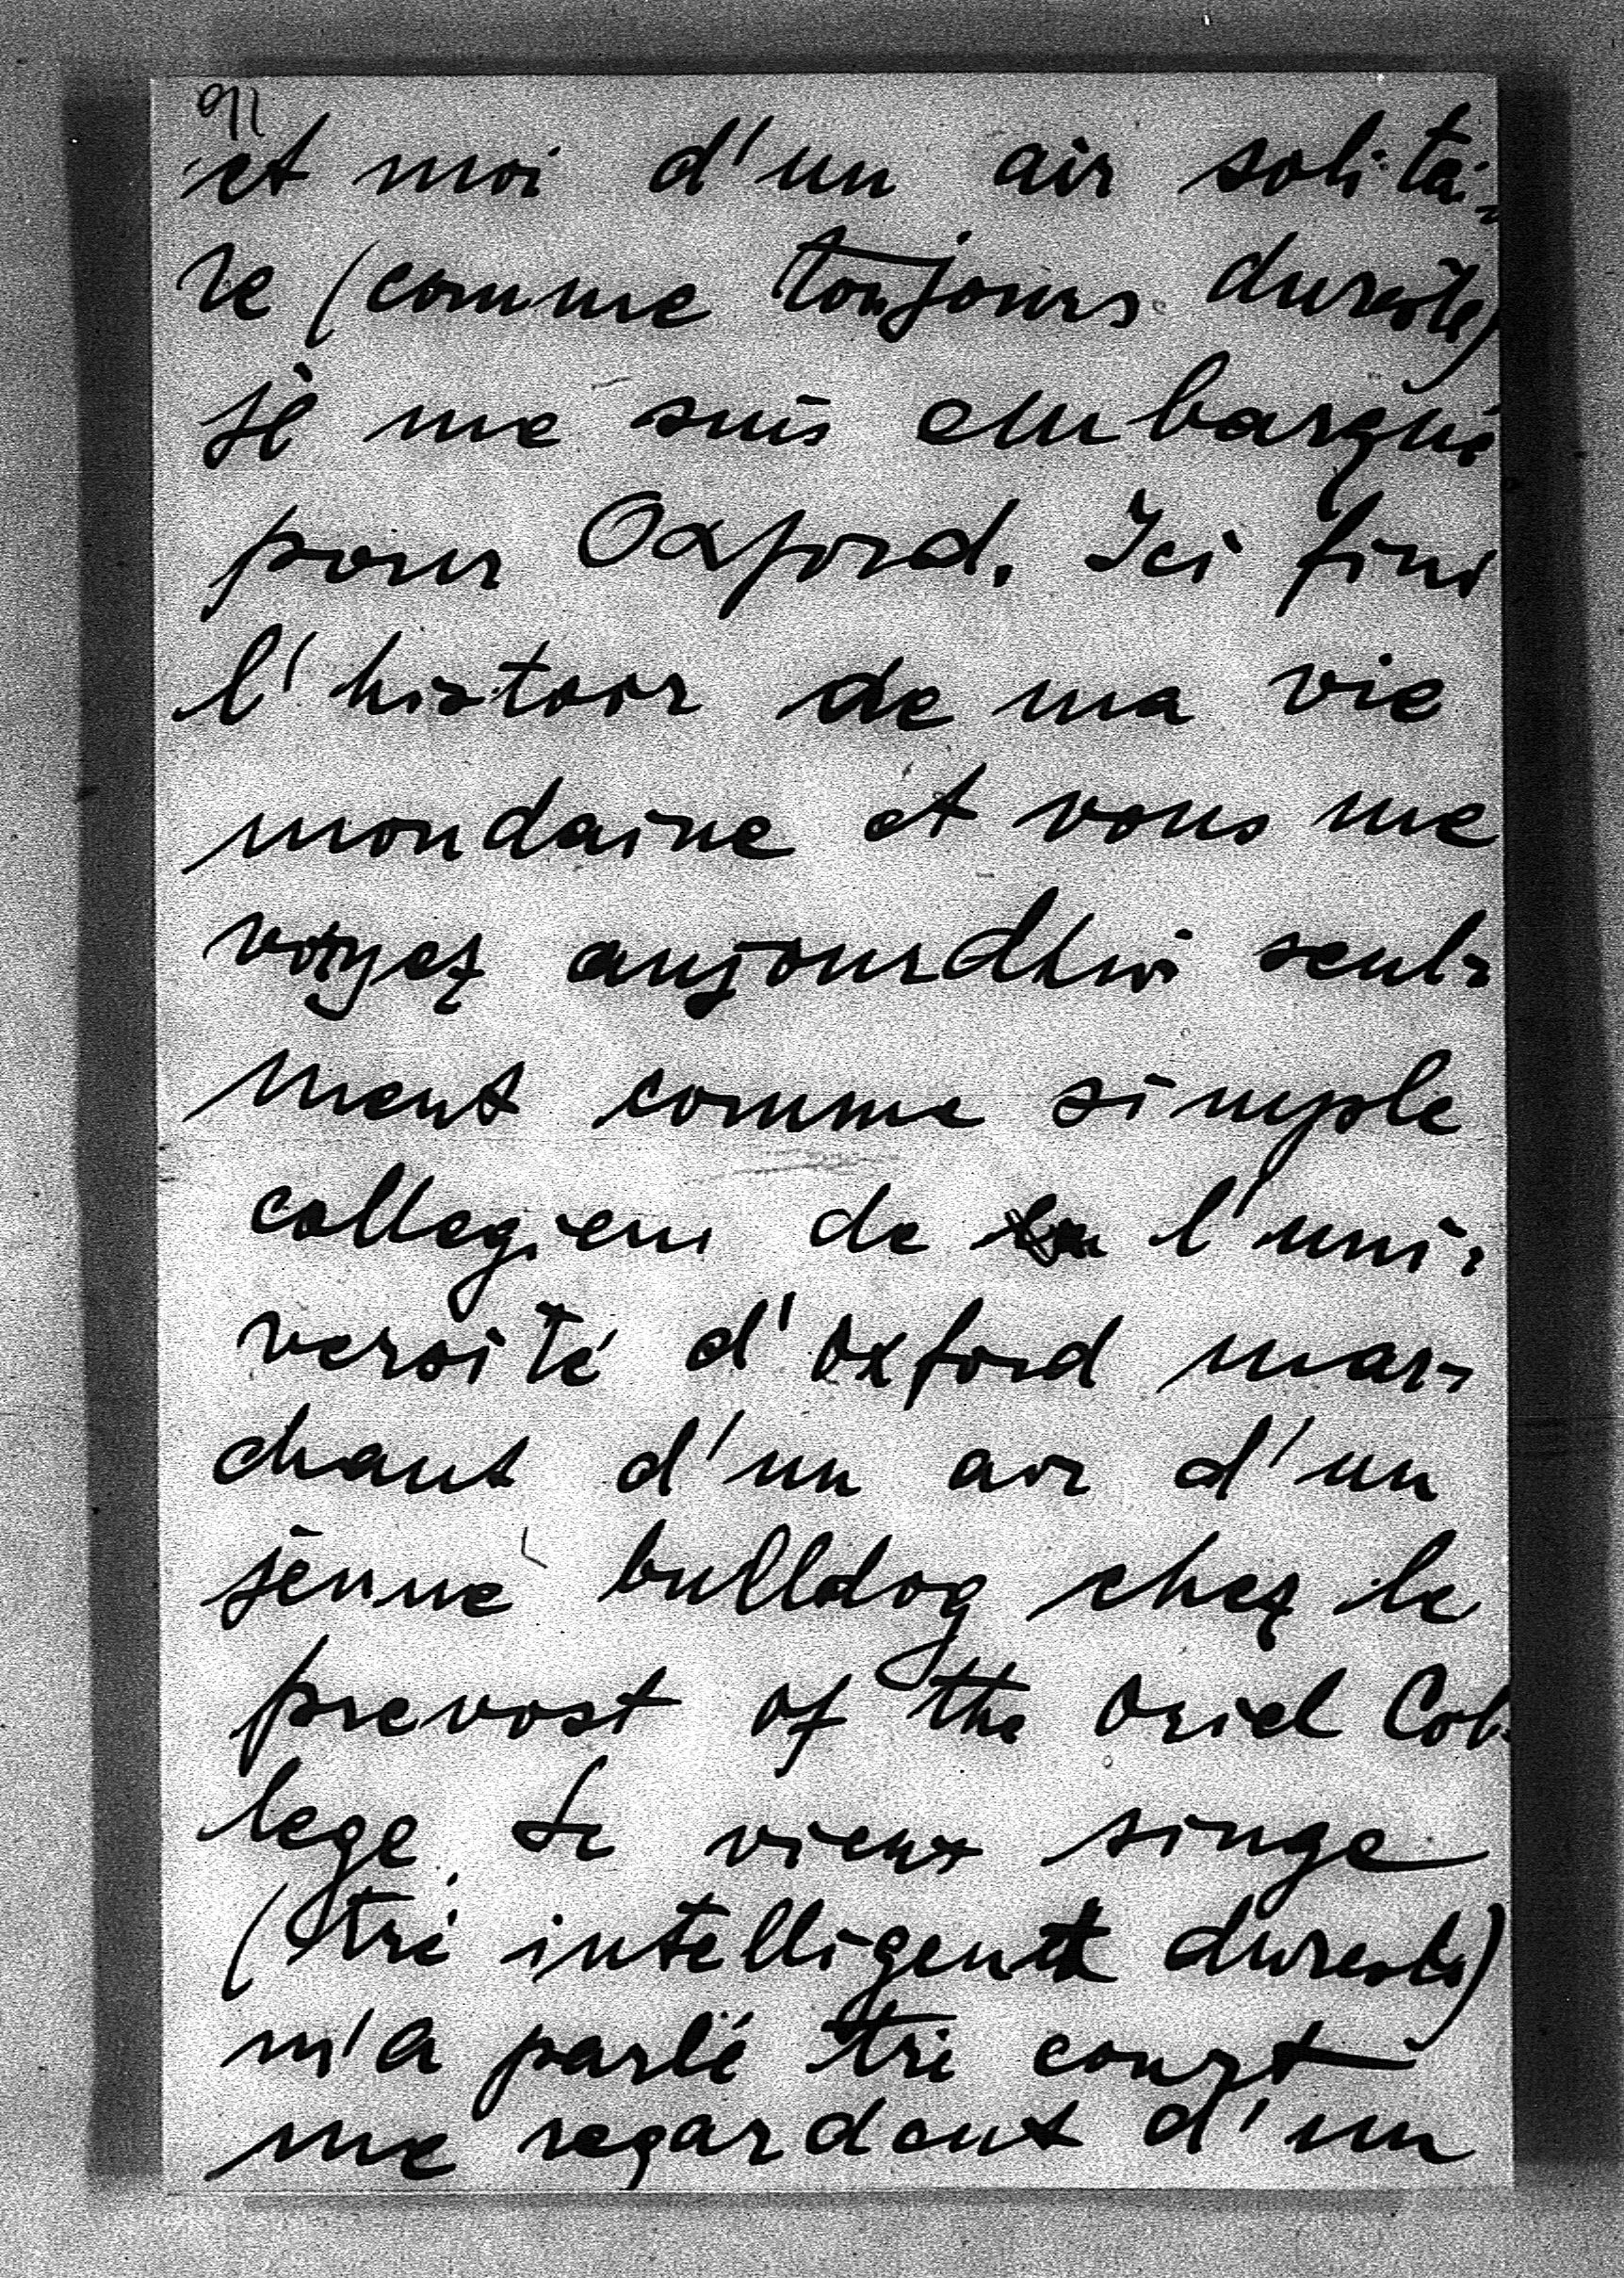 91
et moi d'un air solitai-
re (comme toujours dureste)
je me suis embarqué
pour Oxford. Ici fini
l'histoir de ma vie
mondaine et vous me
voiyez aujourdhui seule-
ment comme simple
collegien de l'uni-
versité d'Oxford mar-
chant d'un air d'un
jeune bulldog chez le
prevost of the Oriel Col-
lege. Le vieux singe
(tré intelligent dureste)
m'a parlé tré court
me regardant d'un